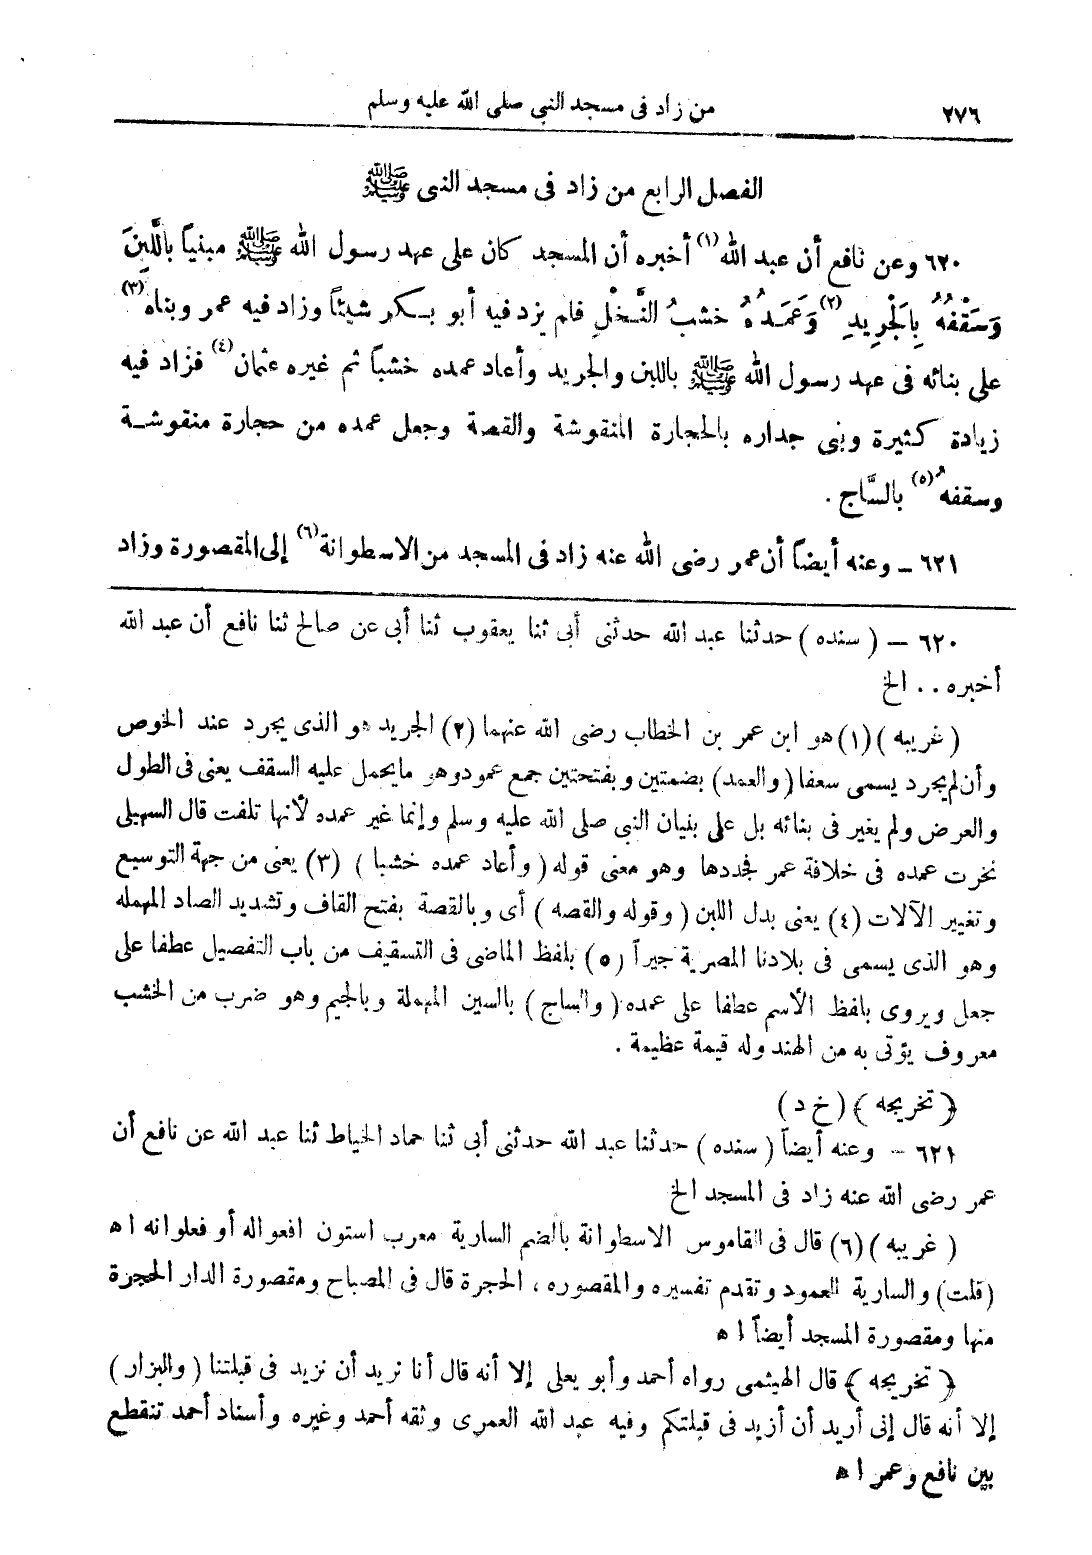 ٢٧٦ من زاد فى مسجد النبي صلى الله عليه وسلم
الفصل الرابع من زاد فى مسجد النبى ﷺ
٦٢٠ وعن نافع أن عبد الله (١) أخبره أن المسجد كان على عهد رسول الله ﷺ مبنياً باللَّبِنَ
وَسَقْفُهُ بِالَجْرِيدِ (٢) وَعَمَدُهُ خشبُ النَّخْلِ فلم يزد فيه أبو بكر شيئاً وزاد فيه عمر وبناه (٣)
على بنائه فى عهد رسول الله ﷺ باللبن والجريد وأعاد عمده خشباً ثم غيره عثمان (٤) فزاد فيه
زيادة كثيرة وبنى جداره بالحجارة المنقوشة والقصة وجعل عمده من حجارة منقوشة
وسقفهُ (٥) بالسَّاج .
٦٢١ – وعنه أيضاً أن عمر رضى الله عنه زاد فى المسجد من الاسطوانة (٦) إلى المقصورة وزاد
٦٢٠ – ( سنده ) حدثنا عبد الله حدثنى أبى ثنا يعقوب ثنا أبى عن صالح ثنا نافع أن عبد الله
أخبره .. الخ
( غريبه ) (١) هو ابن عمر بن الخطاب رضى الله عنهما (٢) الجريد هو الذى يجرد عند الخوص
وأن لم يجرد يسمى سعفا ( والعمد ) بضمتين وبفتحتين جمع عمود وهو ما يحمل عليه السقف يعنى فى الطول
والعرض ولم يغير فى بنائه بل على بنيان النبي صلى الله عليه وسلم وإنما غير عمده لأنها تلفت قال السهيلى
نخرت عمده فى خلافة عمر فجددها وهو معنى قوله ( وأعاد عمده خشبا ) (٣) يعنى من جهة التوسيع
وتغيير الآلات (٤) يعنى بدل اللبن ( وقوله والقصه ) أى وبالقصة بفتح القاف وتشديد الصاد المهمله
وهو الذى يسمى فى بلادنا المصرية جيراً (٥) بلفظ الماضى فى التسقيف من باب التفصيل عطفا على
جعل ويروى بلفظ الأسم عطفا على عمده ( والساج ) بالسين المهملة وبالجيم وهو ضرب من الخشب
معروف يؤتى به من الهند وله قيمة عظيمة .
﴿ تخريجه ﴾ ( خ د )
٦٢١ – وعنه أيضاً ( سنده ) حدثنا عبد الله حدثنى أبى ثنا حماد الخياط ثنا عبد الله عن نافع أن
عمر رضى الله عنه زاد فى المسجد الخ
( غريبه ) (٦) قال فى القاموس الاسطوانة بالضم السارية معرب استون افعواله أو فعلوانه ا ه
(قلت) والسارية العمود وتقدم تفسيره والمقصوره ، الحجرة قال فى المصباح ومقصورة الدار الحجزة
منها ومقصورة المسجد أيضاً ا ه
﴿ تخريجه ﴾ قال الهيثمى رواه أحمد وأبو يعلى إلا أنه قال أنا نريد أن نزيد فى قبلتنا ( والبزار )
إلا أنه قال إنى أريد أن أزيد فى قبلتكم وفيه عبد الله العمرى وثقه أحمد وغيره وأسناد أحمد تنقطع
بين نافع وعمر ا ه